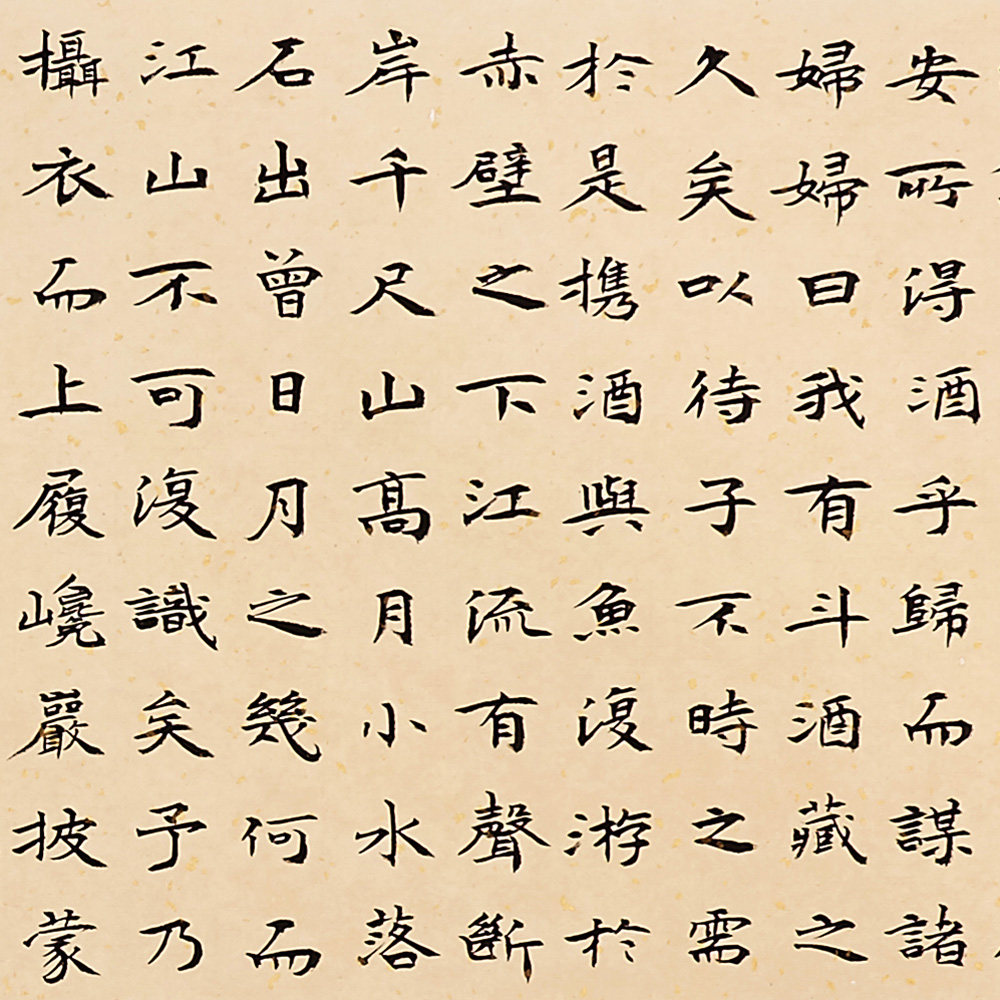 安所得酒乎歸而謀諸
婦婦曰我有斗酒藏之
久矣以待子不時之需
於是携酒與魚復游於
赤壁之下江流有聲斷
岸千尺山高月小水落
石出曾日月之幾何而
江山不可復識矣予乃
攝衣而上履巉巖披蒙